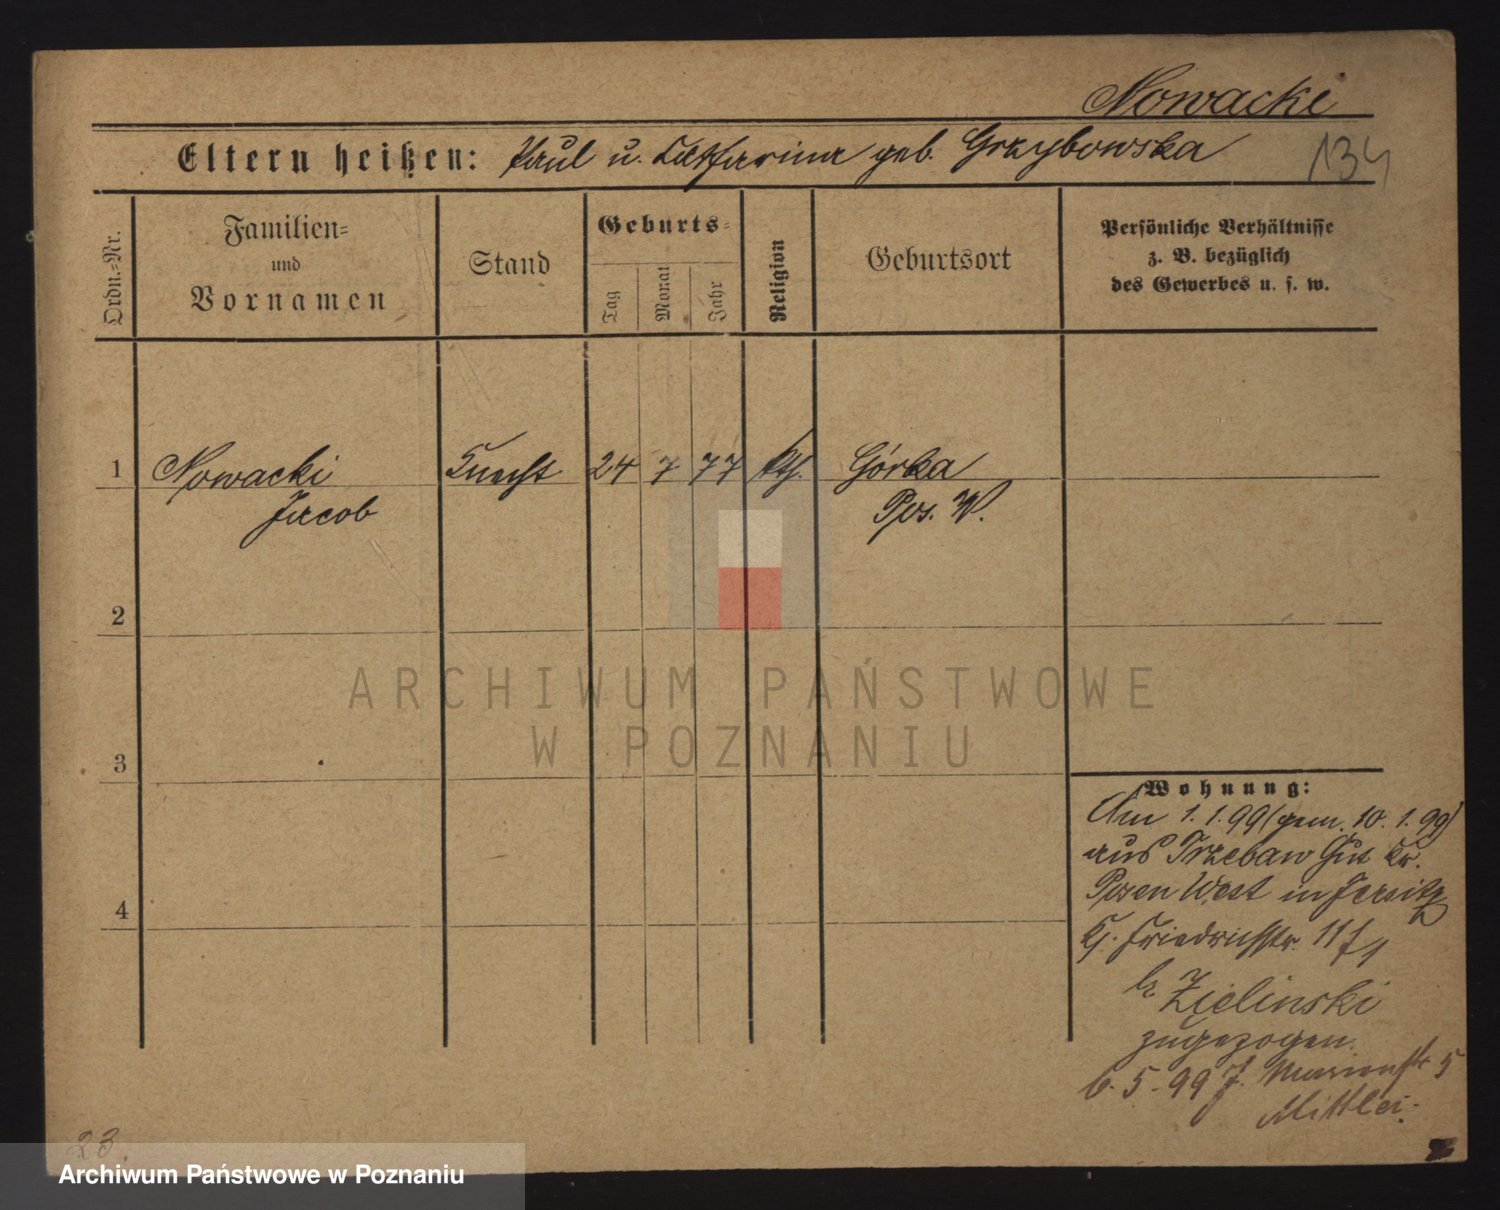 Nowacki
Eltern heißen: Paul u. Catharina geb. Grzybowska
134
Ordn.=Nr.
Familien=
und
Vornamen
Stand
Geburts=
Tag
Monat
Jahr
Religion
Geburtsort
Persönliche Verhältnisse
z. B. bezüglich
des Gewerbes u. s. w.
1 Nowacki Knecht 24 7 77 kth. Górka
Jacob Pos. W.
2
ARCHIWUM PAŃSTWOWE
W POZNANIU
3
Wohnung:
Am 1.1.99 (gem. 10.1.99)
aus Trzebaw Gut Kr.
Posen West in Jersitz
Kj. Friedrichstr. 11
4
b. Zielinski
zugezogen.
6.5.99 J. Marienstr 5
23.
Archiwum Państwowe w Poznaniu